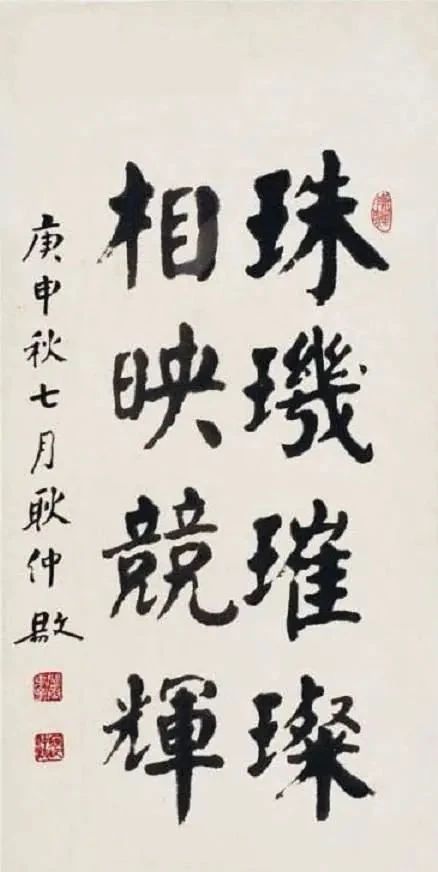 珠璣璀璨
相映競輝
庚申秋七月耿仲敭